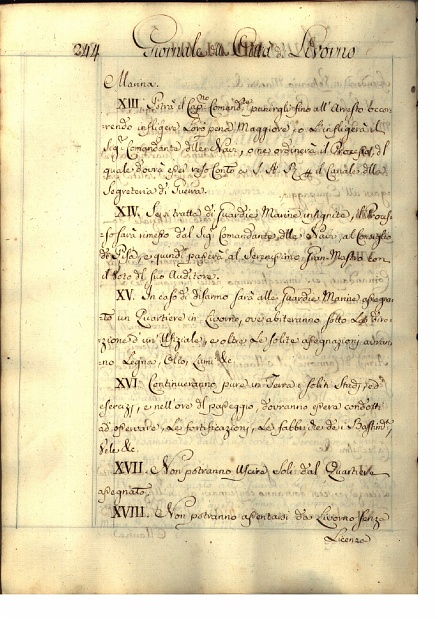 244 Giornale della Città di Livorno
Marina.
XIII. Potrà il Cap.no Comand.te punirgli fino all'Arresto occor
rendo infligere Loro pena Maggiore, o L'infligerà il
Sig.r Comandante delle Navi, o ne ordinerà il Processo, di
quale dovrà esser reso Conto a S. A. R. il Canale della
Segreteria di Guerra.
XIV. Se si tratta di Guardie Marine insignite, il Proces
so sarà rimesso dal Sig.r Comandante delle Navi, al Consiglio
di Pisa, e quindi passerà al Serenissimo Gran-Mastro con
il Voto del suo Auditore.
XV. In caso di disarmo sarà alle Guardie Marine assegna
to un Quartiere in Livorno, ove abiteranno sotto La
zione d'un Uffiziale, e oltre Le solite assegnazioni avran
no Legna, Olio, Lumi &c.
XVI. Continueranno pure in Terra i soliti Studj, ed
esercizj, e nell'ore del passeggio, dovranno essere condotti
ad osservare, Le fortificazioni, Le fabbriche dei Bastimenti,
Vele &c.
XVII. Non potranno Uscire Soli dal Quartiere
assegnato.
XVIII. Non potranno assentarsi da Livorno senza
Licenza